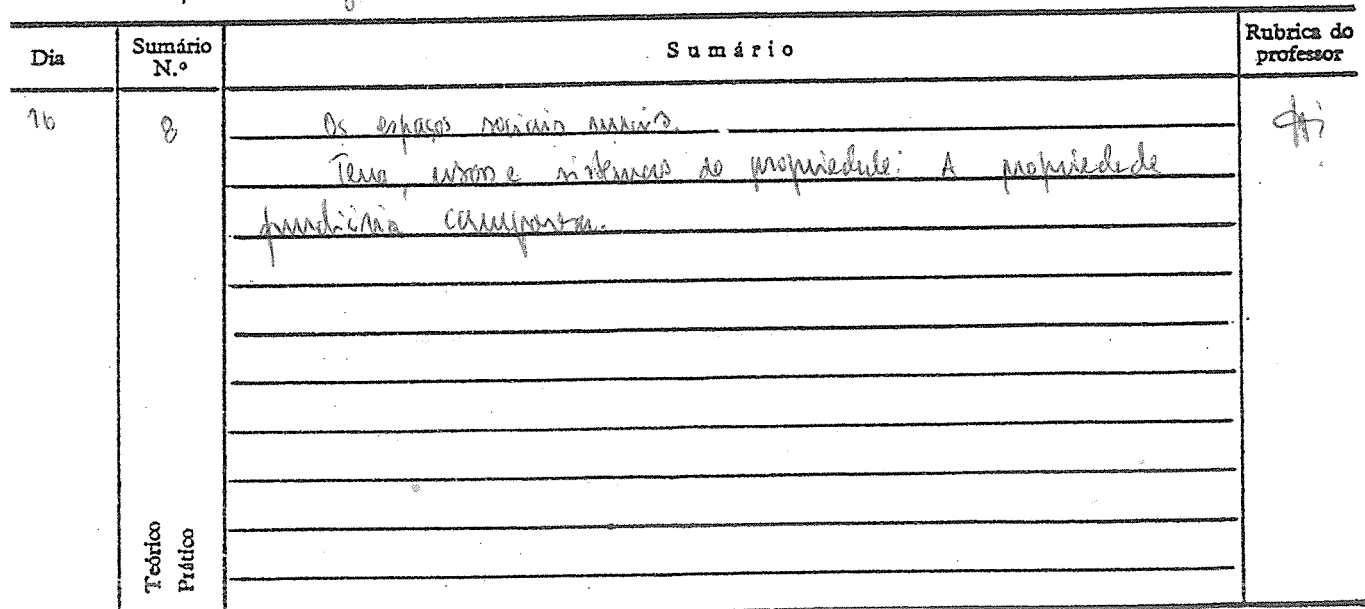 Dia Sumário N.º Sumário Rubrica do professor
16 8 Os espaços sociais rurais.
Terra, usos e sistemas de propriedade: A propriedade
fundiária camponesa.
Teórico
Prático